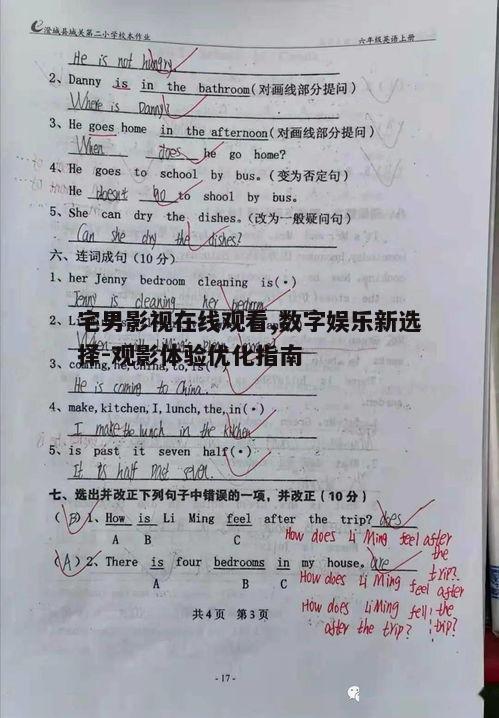 澄城县城关第二小学校本作业 六年级英语上册
He is not hungry
2、Danny is in the bathroom(对画线部分提问)
Where is Danny?
3、He goes home in the afternoon(对画线部分提问)
When does he go home?
4、He goes to school by bus.(变为否定句)
He doesn't go to shool by bus.
5、She can dry the dishes.(改为一般疑问句)
Can she dry the dishes?
六、连词成句(10分)
1、her Jenny bedroom cleaning is(·)
Jenny is cleaning her bedroom
宅男影视在线观看,数字娱乐新选
择-观影体验优化指南
2、L
3、coming,he,China,to,is(
He is coming to China.
4、make,kitchen,I,lunch,the,in(·)
I make the lunch in the kitchen
5、is past it seven half(·)
It is half past seven.
七、选出并改正下列句子中错误的一项,并改正(10分)
(B)1、How is Li Ming feel after the trip? does
A B C
How does Li Ming feel after the trip?
(A)2、There is four bedrooms in my house. are
A B C
How does Li Ming feel after the trip?
How does LiMing fell the
after the trip? trip?
共4页 第3页
-17-